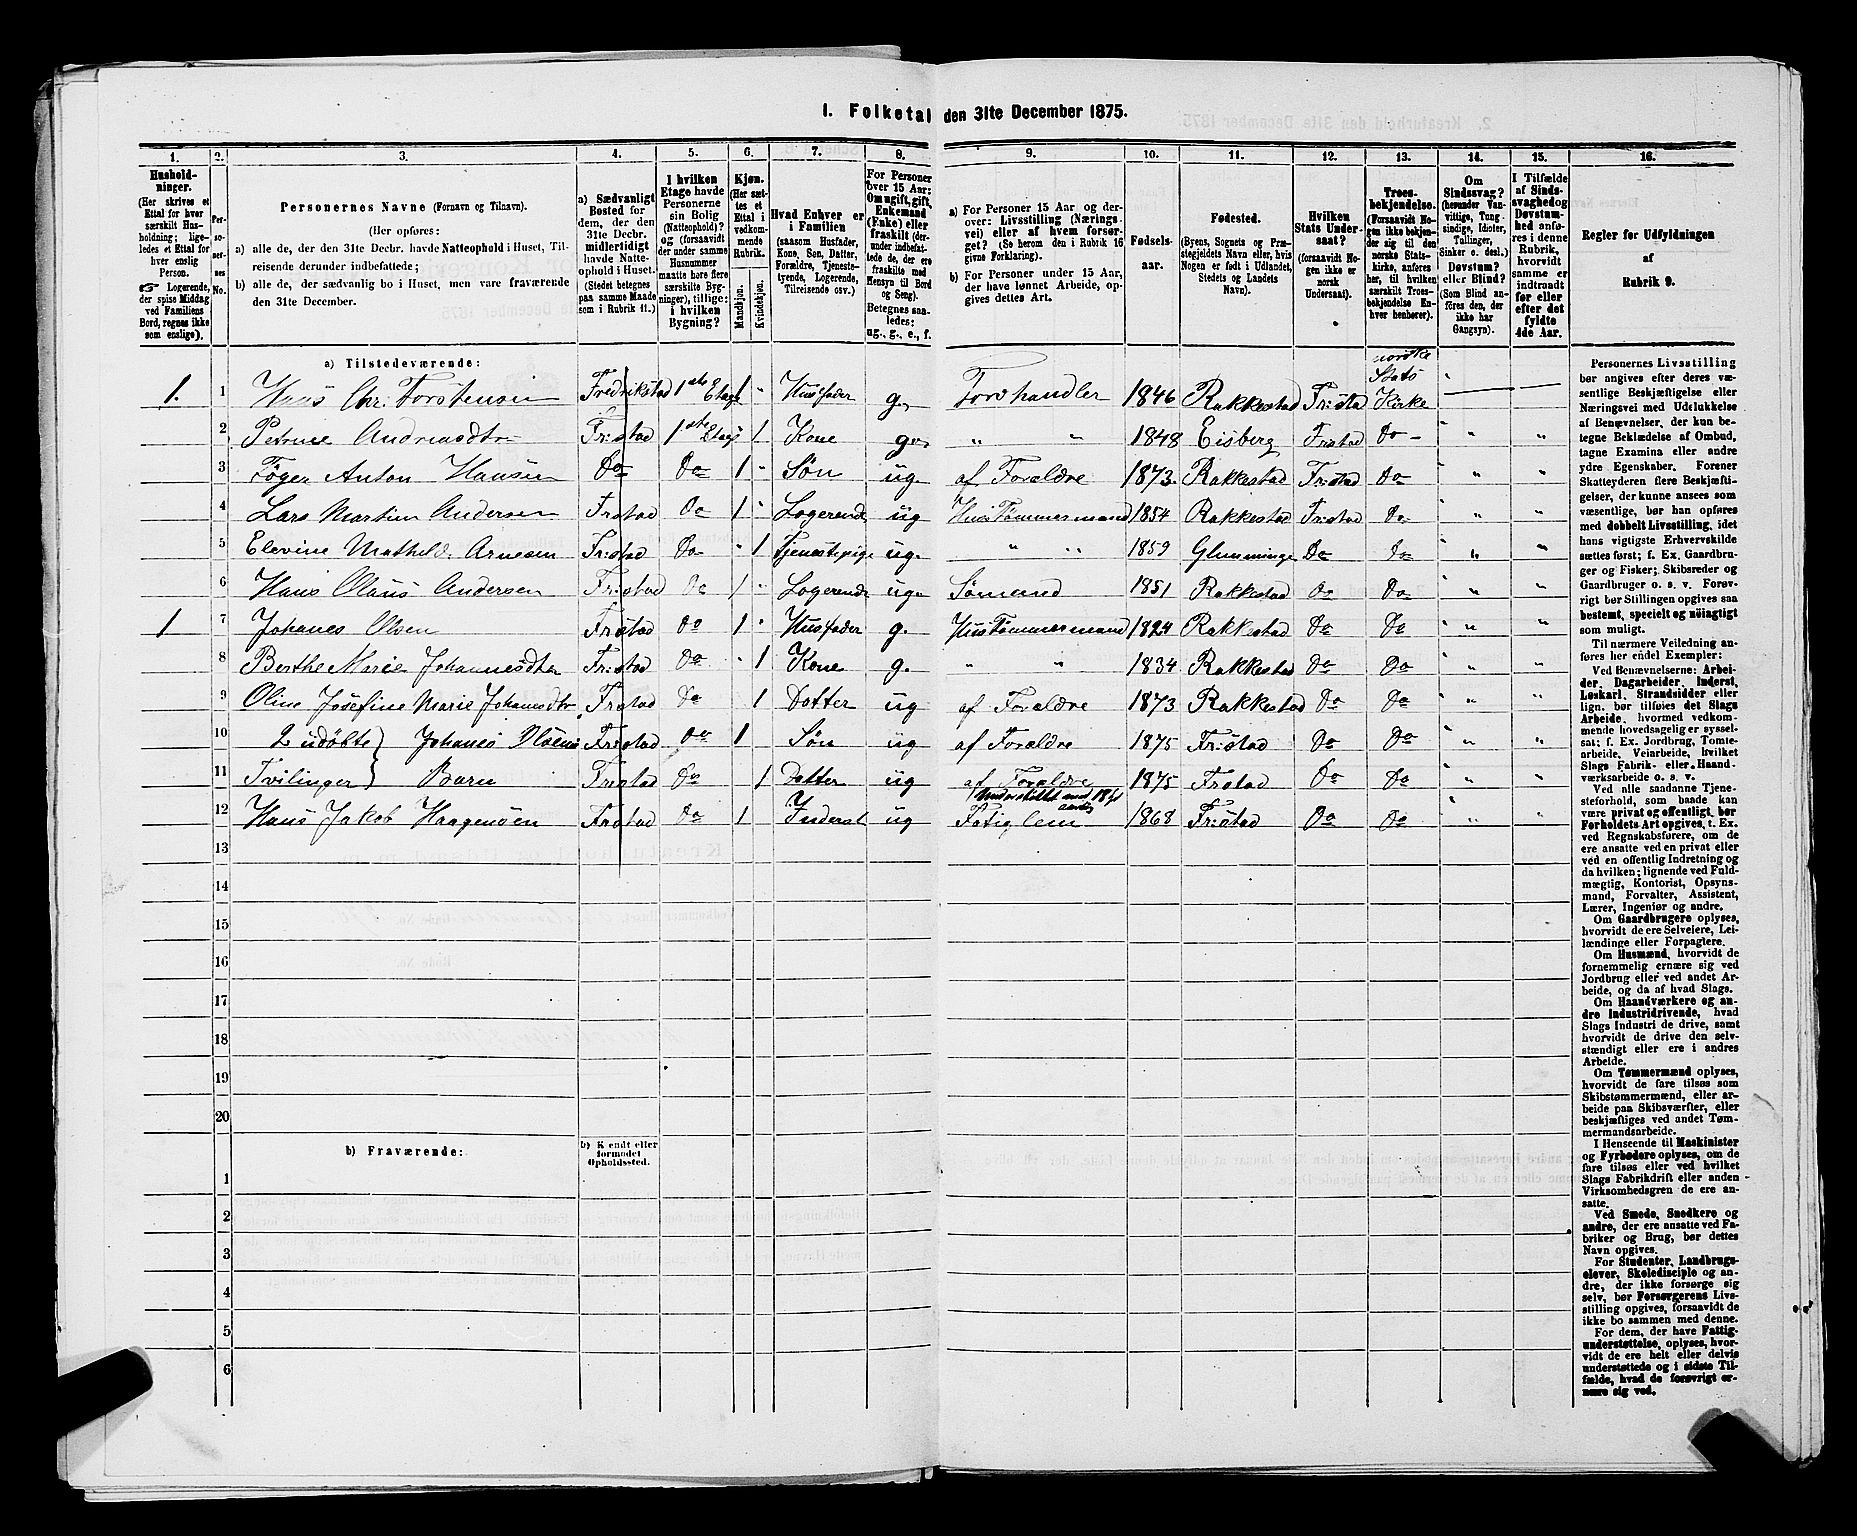 1. Folketal den 31te December 1875.
1. 2. 3. 4. 5. 6. 7. 8. 9. 10. 11. 12. 13. 14. 15. 16.
Hushold-
ninger.
(Her skrives et
Ettal for hver
særskilt Hus-
holdning; lige-
ledes et Ettal for
hver enslig
Person.
☞ Logerende,
der spise Middag
ved Familiens
Bord, regnes ikke
som enslige).
Per-
so-
ner-
nes
No.
Personernes Navne (Fornavn og Tilnavn).
(Her opføres:
a) alle de, der den 31te Decbr. havde Natteophold i Huset, Til-
reisende derunder indbefattede;
b) alle de, der sædvanlig bo i Huset, men vare fraværende
den 31te December.
a) Sædvanligt
Bosted for
dem, der den
31te Decbr.
midlertidigt
havde Natte-
ophold i Huset.
(Stedet betegnes
paa samme Maade
som i Rubrik 11.)
I hvilken
Etage havde
Personerne
sin Bolig
(Natteophold)?
og (forsaavidt
der under samme
Husnummer
maatte høre flere
særskilte Byg-
ninger), tillige:
i hvilken
Bygning?
Kjøn.
(Her sæt-
tes et
Ettal i
vedkom-
mende
Rubrik.
Mandkjøn.
Kvindekjøn.
Hvad Enhver er
i Familien
(saasom Husfader,
Kone, Søn, Datter,
Forældre, Tjeneste-
tyende, Logerende,
Tilreisende osv.)
For Personer
over 15 Aar:
Om ugift, gift,
Enkemand
(Enke) eller
fraskilt (der-
under indbefat-
tede de, der ere
fraskilte med
Hensyn til Bord
og Seng).
Betegnes saa-
ledes:
ug., g., e., f.
a) For Personer 15 Aar og der-
over: Livsstilling (Nærings-
vei) eller af hvem forsør-
get? (Se herom den i Rubrik 16
givne Forklaring).
b) For Personer under 15 Aar,
der have lønnet Arbeide, op-
gives dettes Art.
Fødsels-
aar.
Fødested.
(Byens, Sognets og Præ-
stegjeldets Navn eller, hvis
Nogen er født i Udlandet,
Stedets og Landets
Navn).
Hvilken
Stats Under-
saat?
(forsaavidt No-
gen ikke er
norsk
Undersaat).
Troes-
bekjendelse.
(Forsaavidt No-
gen ikke bekjen-
der sig til den
norske Stats-
kirke, anføres
her, til hvilken
særskilt Troes-
bekjendelse En-
hver henhører).
Om
Sindssvag?
(herunder Van-
vittige, Tung-
sindige, Idioter,
Tullinger,
Sinker o. desl.)
Døvstum?
eller Blind?
(Som Blind an-
føres den, der
ikke har
Gangsyn).
I Tilfælde
af Sinds-
svaghed og
Døvstum-
hed anfø-
res i denne
Rubrik,
hvorvidt
samme er
indtraadt
før eller
efter det
fyldte
4de Aar.
Regler for Udfyldningen
af
Rubrik 9.
a) Tilstedeværende:
norske
Stats
1. 1 Hans Chr. Torstensen Fredrikstad 1ste Etage 1 " Husfader g. Torvhandler 1846 Rakkestad Fr:stad Kirke "
2 Petrine Andreasdtr Fr:stad 1ste Etage 1 Kone g. " " 1848 Eisberg Frstad Do " "
3 Anton Hansen Do Do 1 " Søn ug. af Forældre 1873. Rakkestad Fr:stad Do " "
4 Lars Martin Andersen Frstad Do 1 " Logerende ug HusTømmermand 1854 Rakkestad Frstad Do " "
5 Elevine Mathild. Arnesen Fr:stad Do " 1 Tjenestepige ug. " " 1859 Glemminge Do Do " "
6 Hans Olaus Andersen Fr:stad Do 1 " Logerende ug. Sømand 1851 Rakkestad Do Do " "
1 7 Johanes Olsen Frstad Do 1 " Husfader g. HusTømmermand 1824 Rakkestad Do Do " "
8 Berthe Marie Johannesdtr Fr:stad Do " 1 Kone g. " " 1834 Rakkestad Do Do " "
9 Oline Josefine Marie Johanesdtr. Frstad Do 1 Datter ug af Forældre 1873 Rakkestad Do Do " "
10 2 udøbte } Johanes Olsens Fr:stad Do 1 Søn ug af Forældre 1875 Fr:stad Do Do " "
11 Tvilinger } Barn Fr:stad Do 1 Datter ug af Forældre 1875 Frstad Do Do " "
Understøttet med
12 Hans Jakob Haagensen Frstad Do 1 Inderst ug Fatiglem 1868 Fr:stad Do Do " "
13
14
15
16
17
18
19
20
b) Fraværende:
b) Kjendt eller
formodet
Opholdssted.
1
2
3
4
5
6
Personernes Livsstilling
bør angives efter deres væ-
sentlige Beskjæftigelse eller
Næringsvei med Udelukkelse
af Benævnelser, der kun be-
tegne Beklædelse af Ombud,
tagne Examina eller andre
ydre Egenskaber. Forener
Skatteyderen flere Beskjæfti-
gelser, der kunne ansees som
væsentlige, bør han opføres
med dobbelt Livsstilling, idet
hans vigtigste Erhvervskilde
sættes først; f. Ex. Gaardbru-
ger og Fisker; Skibsreder og
Gaardbruger o. s. v. Forøv-
rigt bør Stillingen opgives saa
bestemt, specielt og nøiagtigt
som muligt.
Til nærmere Veiledning an-
føres her endel Exempler:
Ved Benævnelserne: Arbei-
der, Dagarbeider, Inderst,
Løskarl, Strandsidder eller
lign. bør tilføies det Slags
Arbeide, hvormed vedkom-
mende hovedsagelig er syssel-
sat; f. Ex. Jordbrug, Tomte-
arbeide, Veiarbeide, hvilket
Slags Fabrik- eller Haand-
værksarbeide o. s. v.
Ved alle saadanne Tjene-
steforhold, som baade kan
være privat og offentligt, bør
Forholdets Art opgives, t. Ex.
ved Regnskabsførere, om de
ere ansatte ved en privat eller
ved en offentlig Indretning og
da hvilken; lignende ved Fuld-
mægtig, Kontorist, Opsyns-
mand, Forvalter, Assistent,
Lærer, Ingeniør og andre.
Om Gaardbrugere oplyses,
hvorvidt de ere Selveiere, Lei-
lændinge eller Forpagtere.
Om Husmænd, hvorvidt de
fornemmelig ernære sig ved
Jordbrug eller ved andet Ar-
beide, og da af hvad Slags.
Om Haandværkere og an-
dre Industridrivende, hvad
Slags Industri de drive, samt
hvorvidt de drive den selv-
stændigt eller ere i andres
Arbeide.
Om Tømmermænd oplyses,
hvorvidt de fare tilsøs som
Skibstømmermænd, eller ar-
beide paa Skibsværfter, eller
beskjæftiges ved andet Tøm-
mermandsarbeide.
I Henseende til Maskinister
og Fyrbødere oplyses, om de
fare tilsøs eller ved hvilket
Slags Fabrikdrift eller anden
Virksomhedsgren de ere an-
satte.
Ved Smede, Snedkere og
andre, der ere ansatte ved Fa-
briker og Brug, bør dettes
Navn opgives.
For Studenter, Landbrugs-
elever, Skoledisciple og an-
dre, der ikke forsørge sig
selv, bør Forsørgerens Livs-
stilling opgives, forsaavidt de
ikke bo sammen med denne.
For dem, der have Fattig-
understøttelse, oplyses, hvor-
vidt de ere helt eller delvis
understøttede og i sidste Til-
fælde, hvad de forøvrigt er-
nære sig ved.